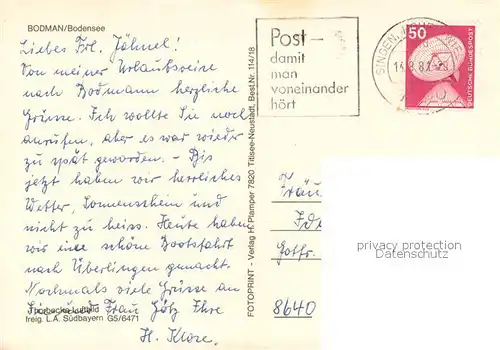 BODMAN/Bodensee
Liebes Frl. Jähnel!
Von meiner Urlaubsreise
nach Bodmann herzliche
Grüsse. Ich wollte Sie noch
anrufen, aber es war wieder
zu spät geworden. - Bis
jetzt haben wir herrliches
Wetter, Sonnenschein und
nicht zu heiss. Heute haben
wir eine schöne Bootsfahrt
nach Überlingen gemacht.
Nochmals viele Grüsse an
Sie und Frau Götz Ihre
H. Klose.
Thorbecke-Luftbild
freig. L.A. Südbayern G5/6471
FOTOPRINT - Verlag H. Plamper 7820 Titisee-Neustadt, Best.Nr. 114/18
Post -
damit
man
voneinander
hört
SINGEN, HOHENTWIEL
50
DEUTSCHE BUNDESPOST
Fräu
Ida
Gottfr.
8640
privacy protection
Datenschutz